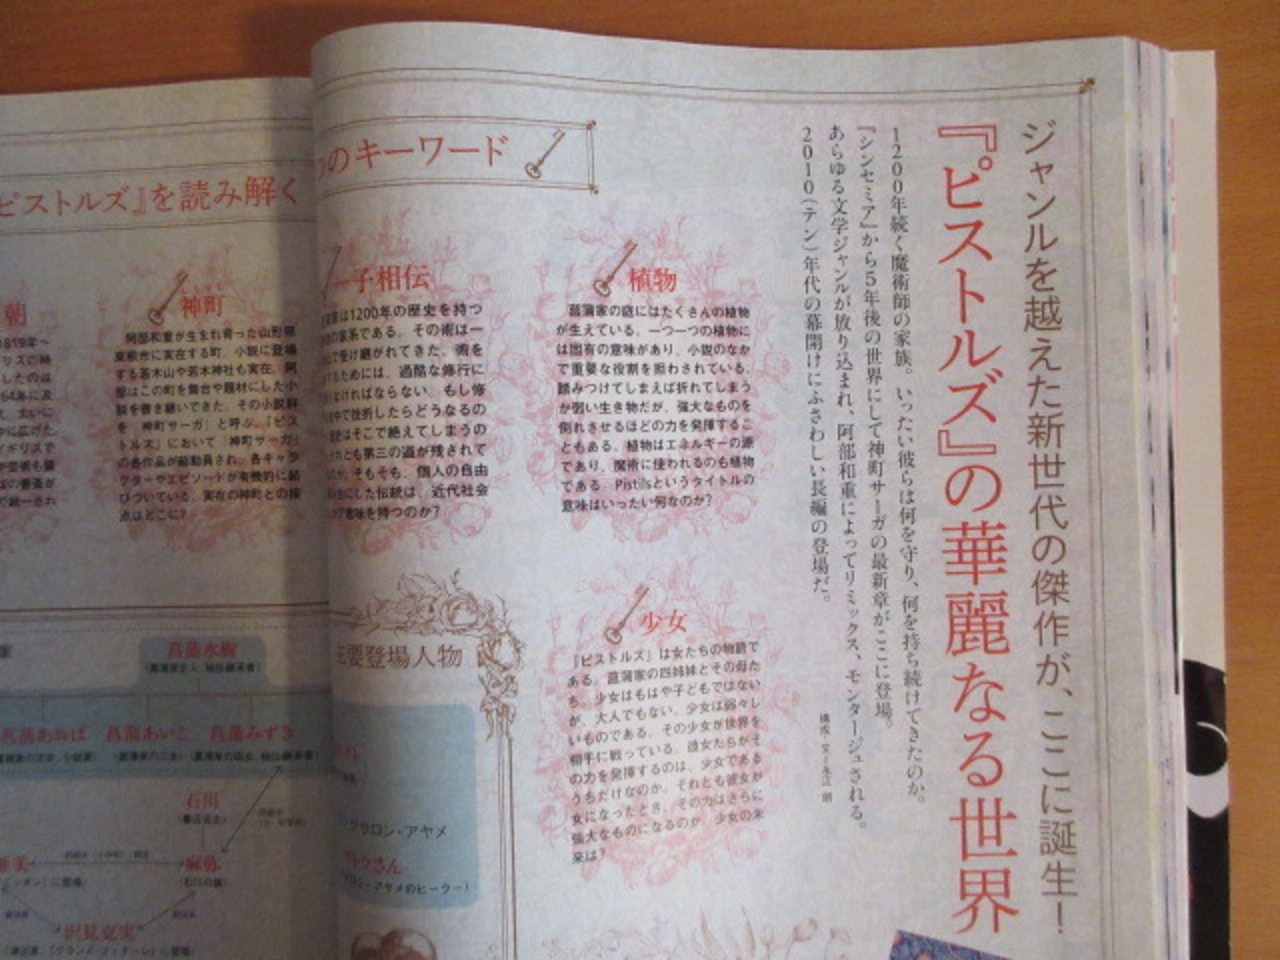 ジャンルを越えた新世代の傑作が、ここに誕生！
『ピストルズ』の華麗なる世界
1200年続く魔術師の家族。いったい彼らは何を守り、何を持ち続けてきたのか。
『シンセミア』から5年後の世界にして神町サーガの最新章がここに登場。
あらゆる文学ジャンルが放り込まれ、阿部和重によってリミックス、モンタージュされる。
2010（テン）年代の幕開けにふさわしい長編の登場だ。
構成・文＝永江 朗
ピストルズ』を読み解く
つのキーワード
植物
菖蒲家の庭にはたくさんの植物
が生えている。一つ一つの植物に
は固有の意味があり、小説のなか
で重要な役割を担わされている。
踏みつけてしまえば折れてしまう
か弱い生き物だが、強大なものを
倒れさせるほどの力を発揮するこ
ともある。植物はエネルギーの源
であり、魔術に使われるのも植物
である。Pistilsというタイトルの
意味はいったい何なのか？
少女
『ピストルズ』は女たちの物語で
ある。菖蒲家の四姉妹とその母た
ち。少女はもはや子どもではない
が、大人でもない。少女は弱々し
いものである。その少女が世界を
相手に戦っている。彼女たちがそ
の力を発揮するのは、少女である
うちだけなのか。それとも彼女が
女になったとき、その力はさらに
強大なものになるのか。少女の未
来は？
一子相伝
は1200年の歴史を持つ
の家系である。その術は一
で受け継がれてきた。術を
するためには、過酷な修行に
なければならない。もし修
中で挫折したらどうなるの
はそこで絶えてしまうの
とも第三の道が残されて
か。そもそも、個人の自由
にした伝統は、近代社会
で意味を持つのか？
神町
阿部和重が生まれ育った山形県
東根市に実在する町。小説に登場
する若木山や若木神社も実在。阿
部はこの町を舞台や題材にした小
説を書き継いできた。その小説群
を「神町サーガ」と呼ぶ。『ピス
トルズ』において「神町サーガ」
の各作品が総動員され、各キャラ
クターやエピソードが有機的に結
びついている。実在の神町との接
点はどこに？
朝
主要登場人物
菖蒲水樹
菖蒲あおば
菖蒲あいこ
菖蒲みずき
石川
麻弥
沢見克実
サロン・アヤメ
アヤメのヒーラー）